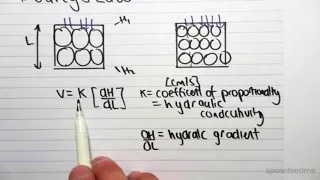 L
H₁
H₂
V = K [dH/dL]
[cm/s]
K = coefficient of proportionality
= hydraulic
conductivity
dH/dL = hydralic gradient
spoonfeedme